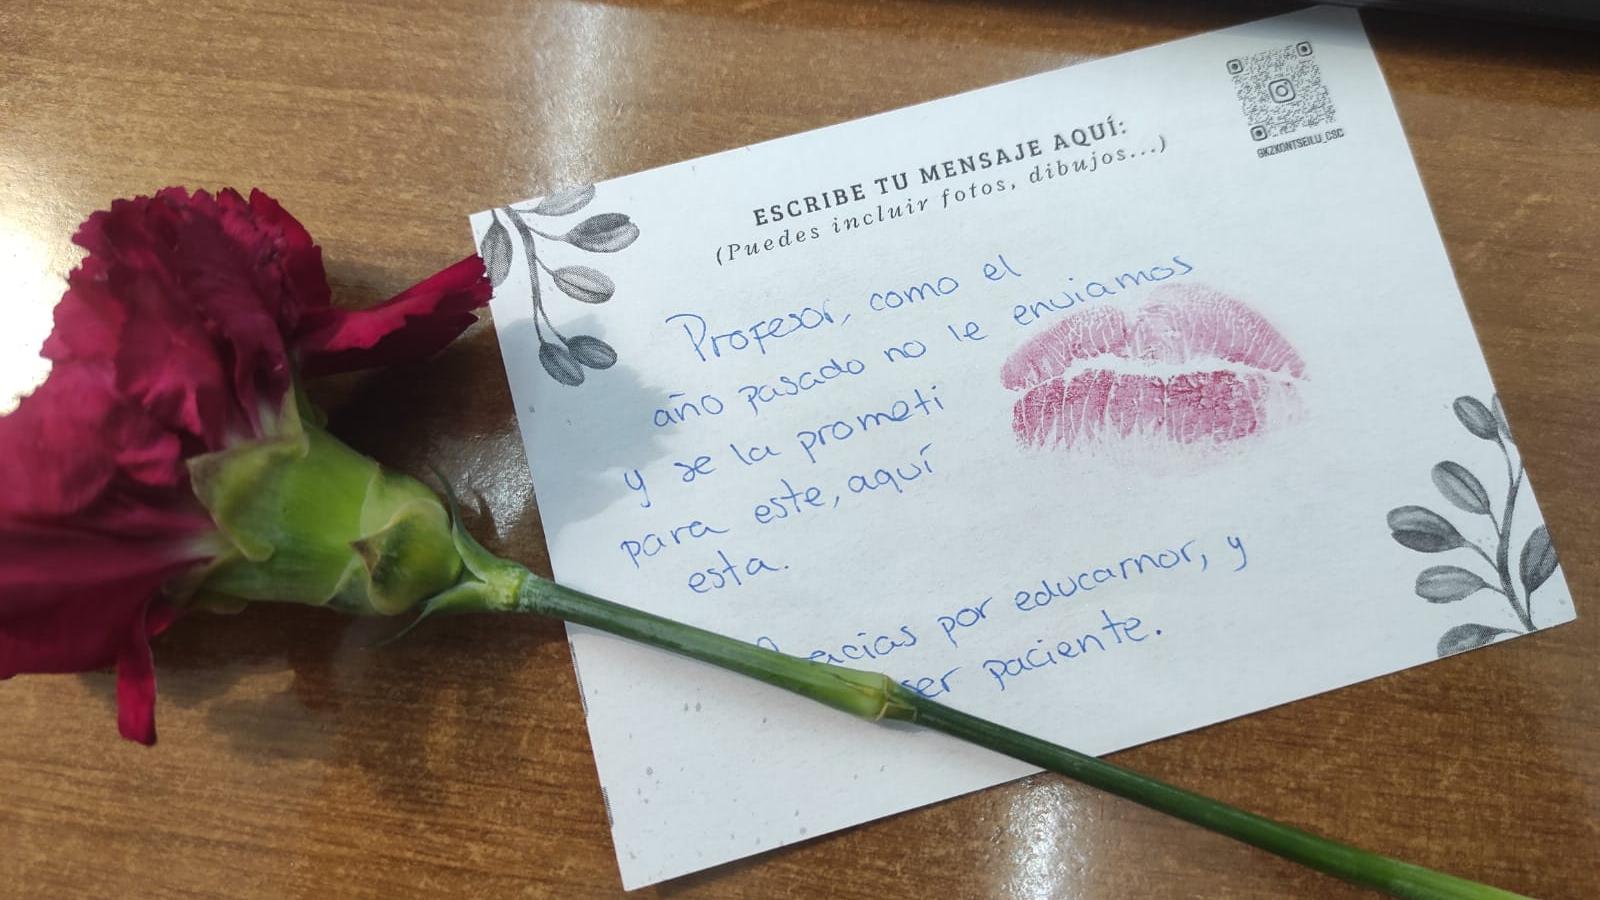 ESCRIBE TU MENSAJE AQUÍ:
(Puedes incluir fotos, dibujos...)
GKZKONTSEILU_CSC
Profesor, como el
año pasado no le enviamos
y se la prometi
para este, aquí
esta.
Gracias por educarnor, y
ser paciente.